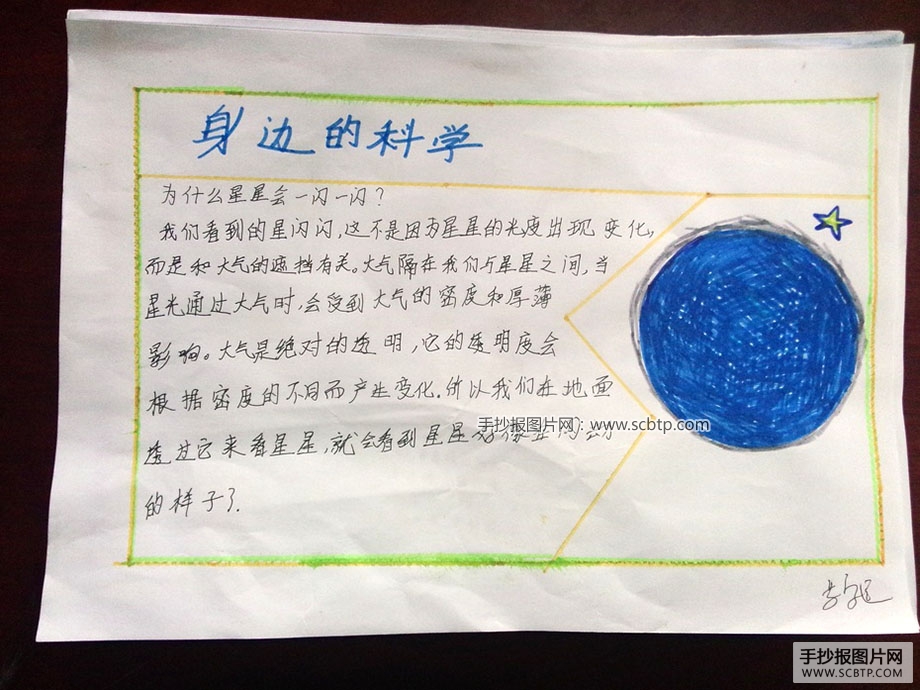 身边的科学
为什么星星会一闪一闪？
我们看到的星闪闪，这不是因为星星的光度出现变化，
而是和大气的遮挡有关。大气隔在我们与星星之间，当
星光通过大气时，会受到大气的密度和厚薄
影响。大气是绝对的透明，它的透明度会
根据密度的不同而产生变化.所以我们在地面
手抄报图片网：www.scbtp.com
透过它来看星星，就会看到星星
的样子了.
手抄报图片网
WWW.SCBTP.COM